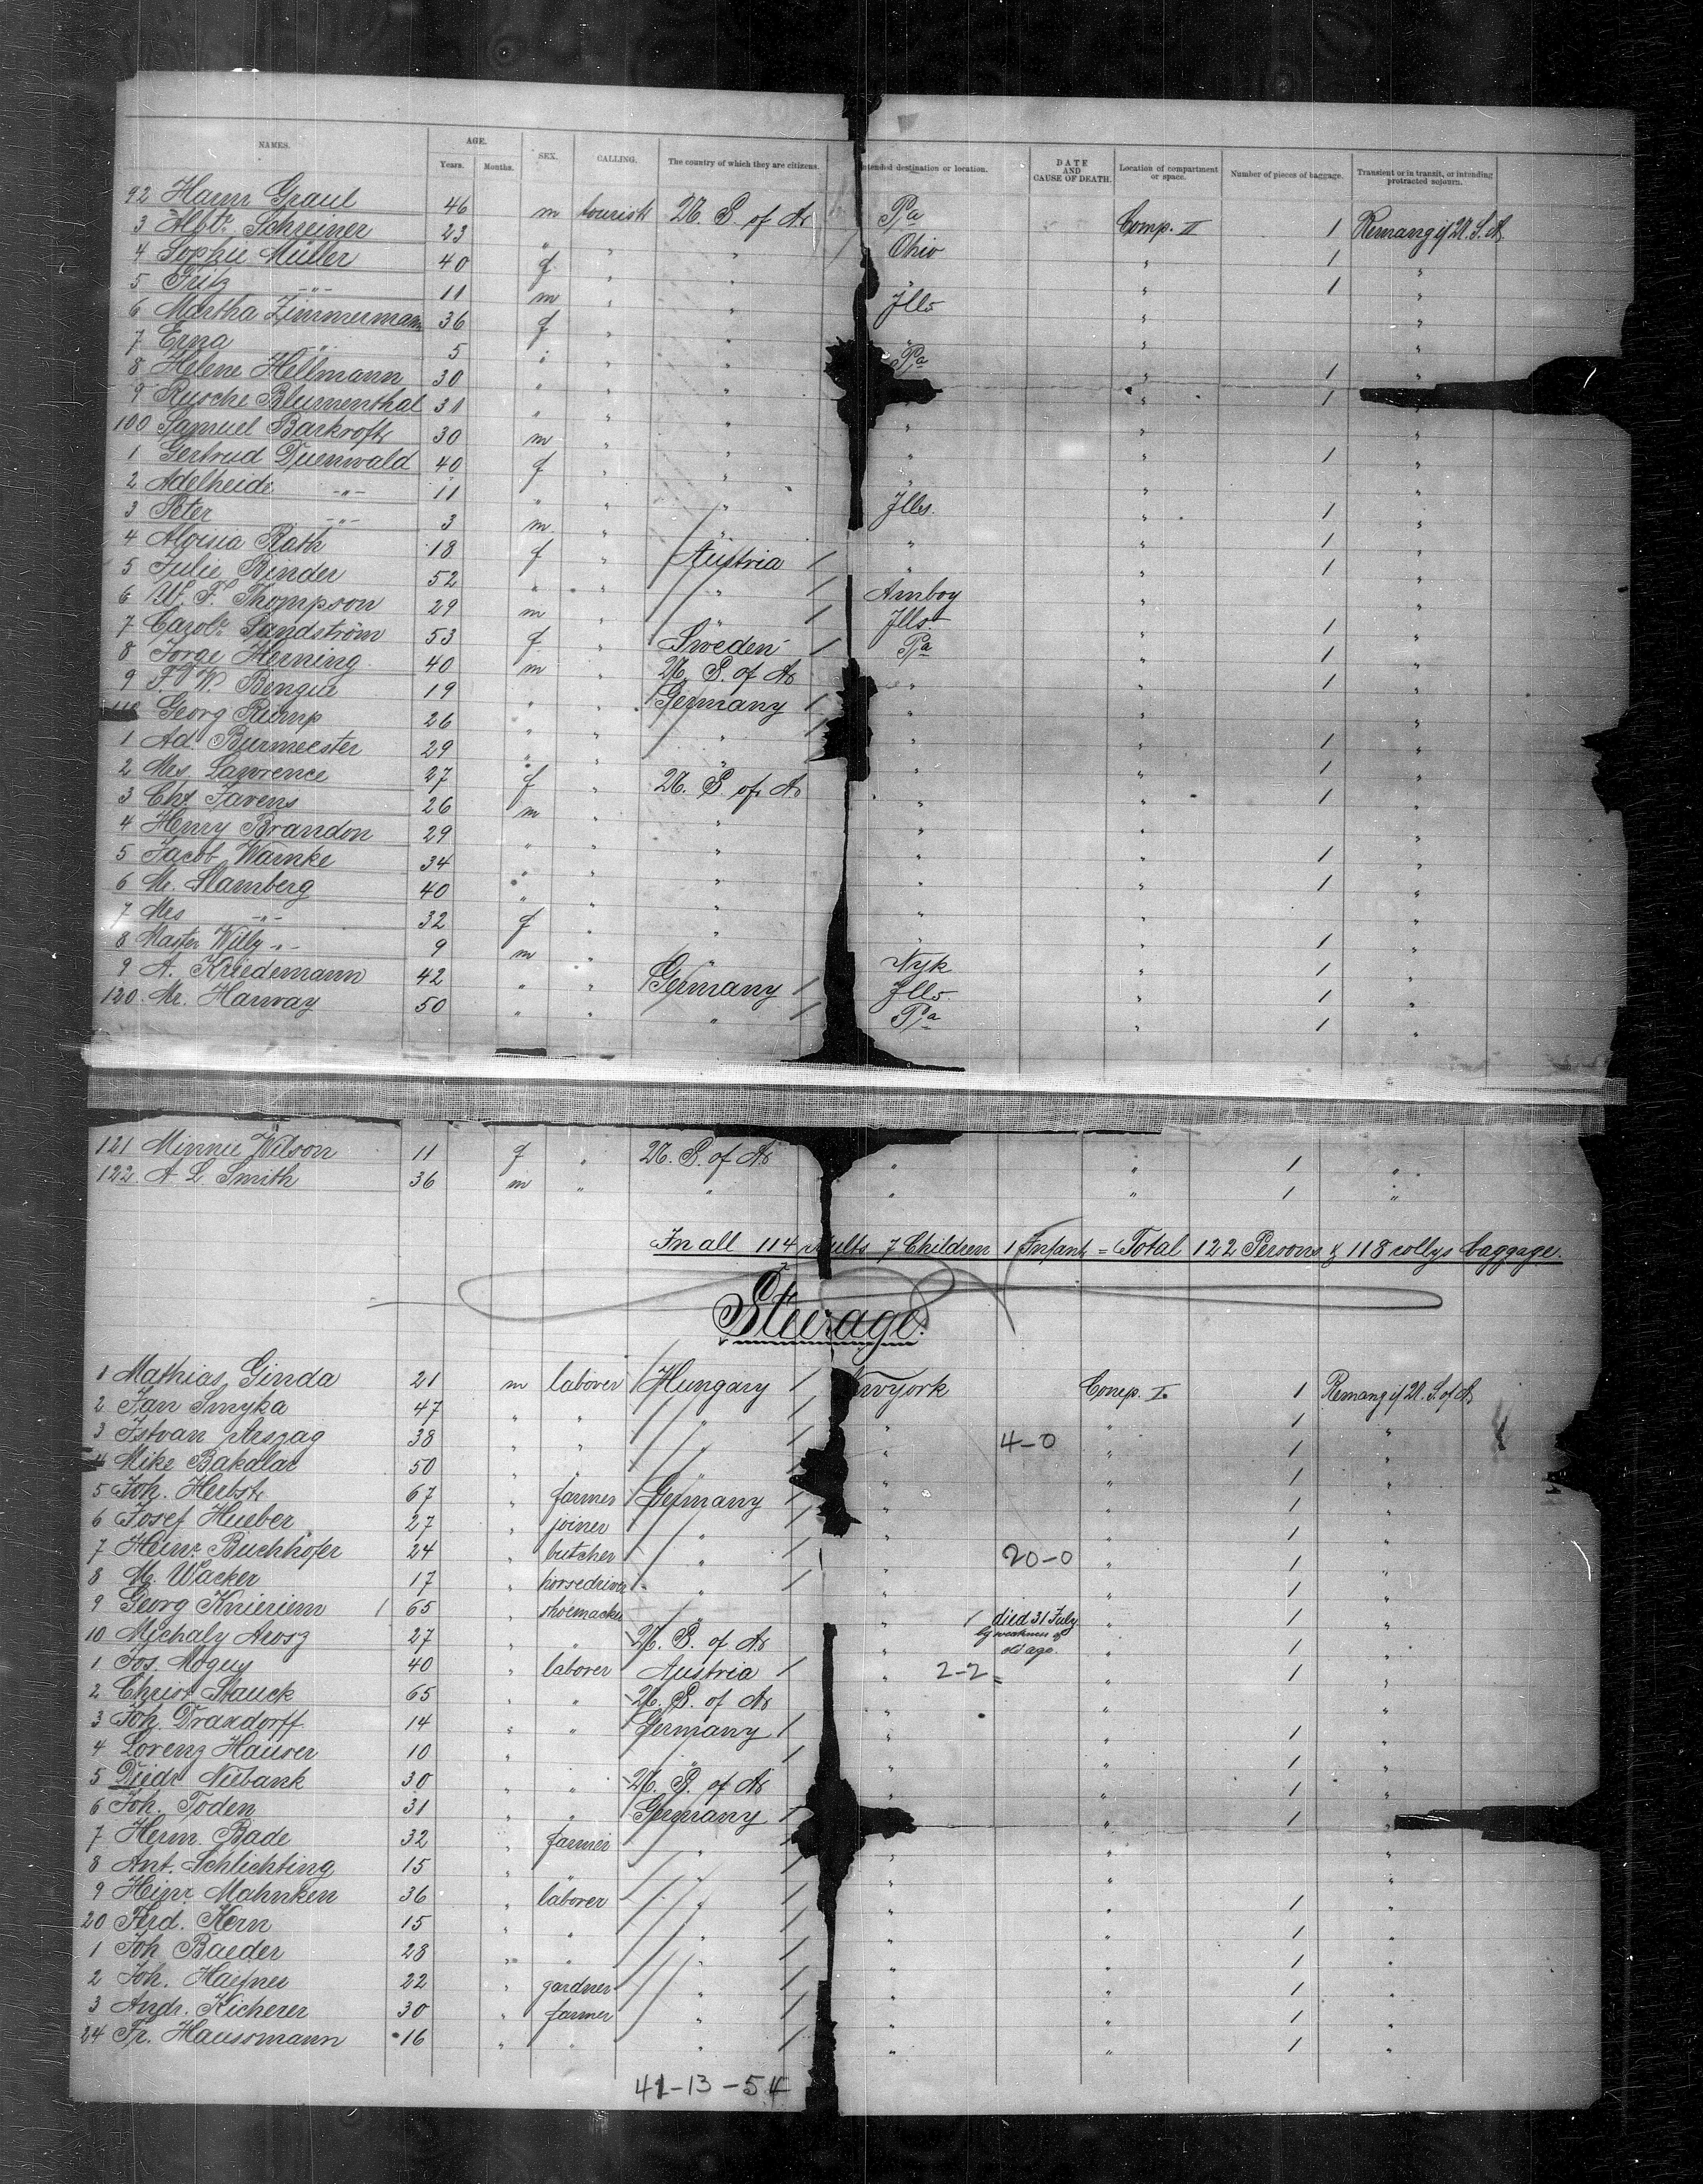 NAMES. AGE. Years. Months. SEX. CALLING. The country of which they are citizens. Intended destination or location. DATE AND CAUSE OF DEATH. Location of compartment or space. Number of pieces of baggage. Transient or in transit, or intending protracted sojourn.
92 Hann Graul 46 m tourist U. S. of A. Pa Comp. II 1 Remang if U. S. A.
3 Albt. Schreiner 23 " " " Ohio " 1 "
4 Sophie Müller 40 f " " " " 1 "
5 Fritz -"- 11 m " " Ills " "
6 Martha Zimmermann 36 f " " " " "
7 Erna -"- 5 " " " Pa " 1 "
8 Helene Hellmann 30 " " " " 1 "
9 Rusche Blumenthal 31 " " " " " "
100 Samuel Barkroft 30 m " " " " 1 "
1 Gertrud Duenwald 40 f " " " " "
2 Adelheide -"- 11 " " " Ills. " 1 "
3 Peter -"- 3 m " " " " 1 "
4 Aloisia Rath 18 f " Austria " " 1 "
5 Julie Binder 52 " " " Amboy " "
6 W. F. Thompson 29 m " " Ills. " 1 "
7 Carol. Sandström 53 f " Sweden Pa " 1 "
8 Jorge Herning 40 m " U. S. of A. " " 1 "
9 F. W. Bengue 19 " " Germany " " "
110 Georg Rump 26 " " " " " 1 "
1 Ad. Burmeester 29 " " " " " 1 "
2 Mrs Lawrence 27 f " U. S. of A. " " 1 "
3 Chr. Javens 26 m " " " " "
4 Henry Brandon 29 " " " " " 1 "
5 Jacob Warnke 34 " " " " " 1 "
6 Mr. Stamberg 40 " " " " " "
7 Mrs -"- 32 f " " " " 1 "
8 Master Willy -"- 9 m " " Nyk " 1 "
9 A. Kriedemann 42 " " Germany Ills. " 1 "
120 Mr. Harway 50 " " " Pa " 1 "
121 Minnie Wilson 11 f " U. S. of A. " " 1 "
122 A. L. Smith 36 m " " " " 1 "
In all 114 adults 7 Children 1 Infant = Total 122 Persons & 118 collys baggage.
Steerage.
1 Mathias Ginda 21 m laborer Hungary Newyork Comp. I. 1 Remang if U. S. of A.
2 Jan Smyka 47 " " " " " 1 "
3 Istvan Arszag 38 " " " " 4-0 " 1 "
4 Mike Bakalar 50 " " " " 1 "
5 Joh. Herbst 67 " farmer Germany " " 1 "
6 Josef Hueber 27 " joiner " " " 1 "
7 Heinr. Buchhofer 24 " butcher " 20-0 " 1 "
8 M. Wacker 17 " horsedriver " " " 1 "
9 Georg Knieriem 65 " shoemacker " " died 31 July by weakness of old age. " 1 "
10 Michaly Arosz 27 " " U. S. of A. " " 1 "
1 Jos. Moguy 40 " laborer Austria " 2-2 = 1 "
2 Christ Stauck 65 " " U. S. of A. " " "
3 Joh. Drandorff 14 " " Germany " " 1 "
4 Lorenz Hauser 10 " " " " 1 "
5 Diedr Niebank 30 " " U. S. of A. " " 1 "
6 Joh. Toden 31 " " Germany " 1 "
7 Herm. Bade 32 " farmer " " "
8 Ant. Schlichting 15 " " " " " "
9 Heinr Mahnken 36 " laborer " " " 1 "
20 Ferd. Kern 15 " " " " " 1 "
1 Joh Baeder 28 " " " " " 1 "
2 Joh. Haefner 22 " gardner " " " 1 "
3 Andr. Kicherer 30 " farmer " " " 1 "
24 Fr. Haussmann 16 " " " " " 1 "
41-13-54